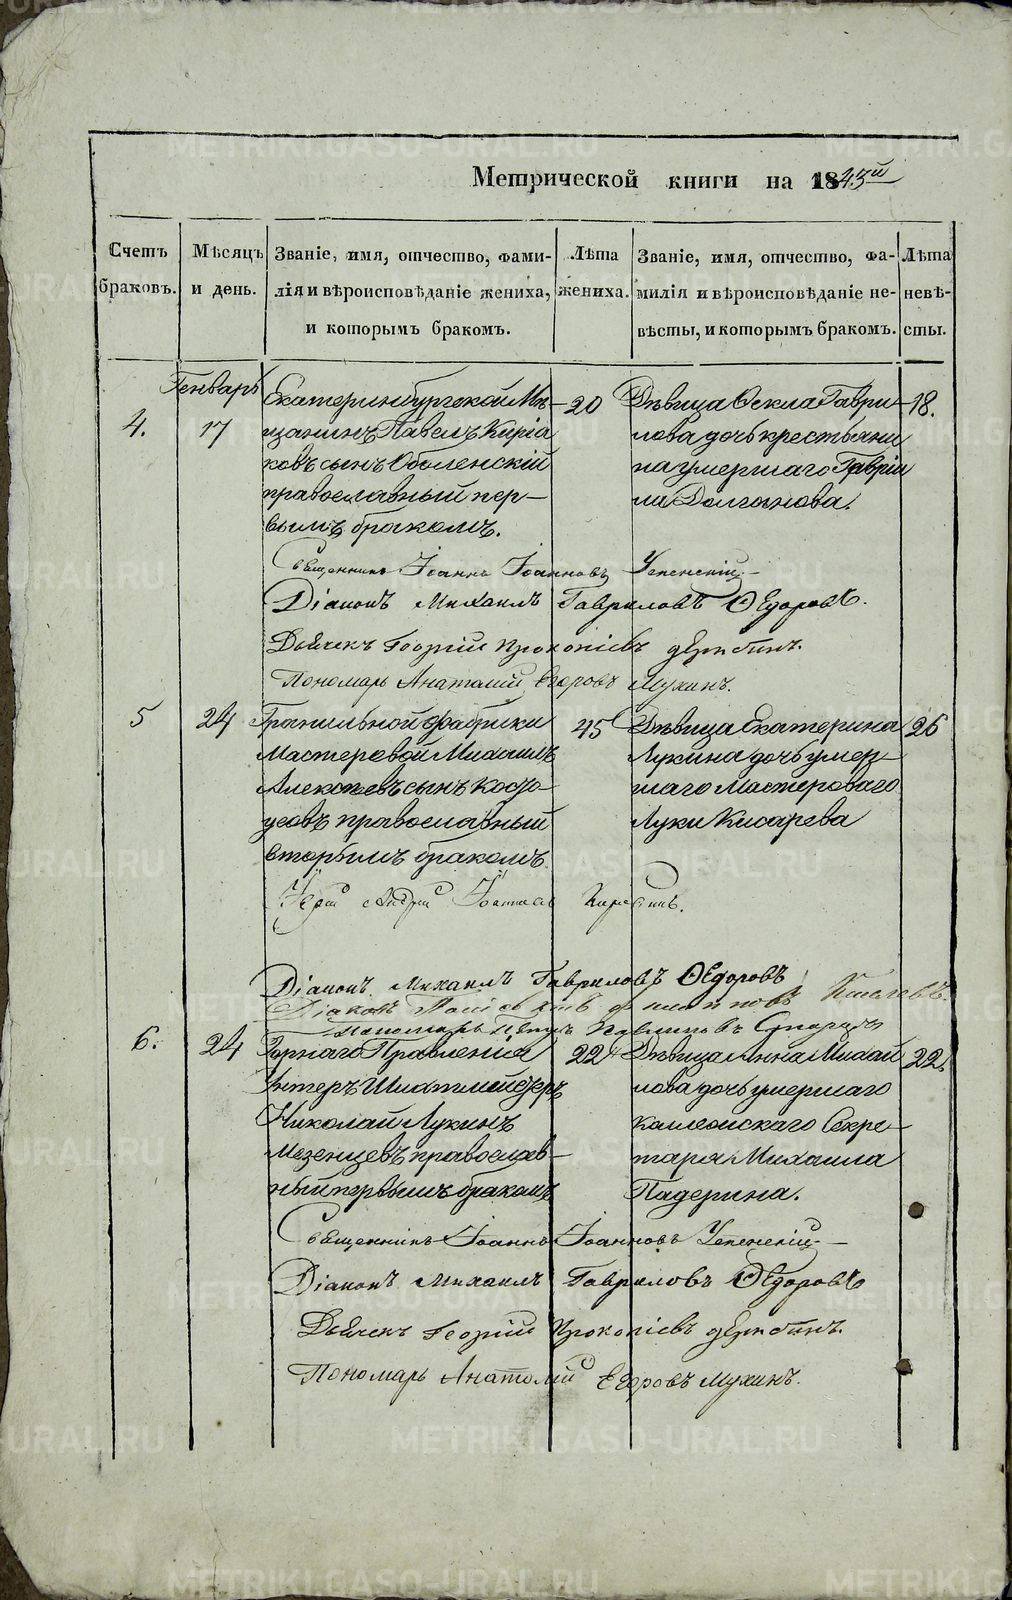 Метрической книги на 1843й
Счетъ браковъ.
Мѣсяцъ и день.
Званіе, имя, отчество, фами-
лія и вѣроисповѣданіе жениха,
и которымъ бракомъ.
Лѣта
жениха.
Званіе, имя, отчество, фа-
милія и вѣроисповѣданіе не-
вѣсты, и которымъ бракомъ.
Лѣта
невѣ-
сты.
Генварь
4.
17
Екатеринбургской Мѣ-
щанинъ Павелъ Киріа
ковъ сынъ Оболенскій
православный пер-
вымъ бракомъ.
20
Дѣвица Ѳекла Гаври-
лова дочь крестьяни
на умершаго Гаврiи
ла Долганова.
18.
Священникъ Іоаннъ Іоанновъ Успенскій
Діаконъ Михаилъ Гавриловъ Ѳедоровъ.
Дьячекъ Георгій Прокопіевъ Дерябинъ.
Пономарь Анатолій Егоровъ Мухинъ.
5
24
Гранильной фабрики
Мастеровой Михаилъ
Алексѣевъ сынъ
православный
вторымъ бракомъ
45
Дѣвица Екатерина
Лукина дочь умер-
шаго Мастероваго
Луки Кисарева
26
Іерей Андрей
Діаконъ Михаилъ Гавриловъ Ѳедоровъ
Киселевъ
6.
24
Горнаго Правленія
Унтеръ Шихтмейстеръ
Николай Лукинъ
Мезенцевъ православ-
ный первымъ бракомъ
22
Дѣвица Анна Михай
лова дочь умершаго
Секре-
таря Михаила
Падерина.
22.
Священникъ Іоаннъ Іоанновъ Успенскій
Діаконъ Михаилъ Гавриловъ Ѳедоровъ
Дьячекъ Георгій Прокопіевъ Дерябинъ.
Пономарь Анатолій Егоровъ Мухинъ.
METRIKI.GASO-URAL.RU